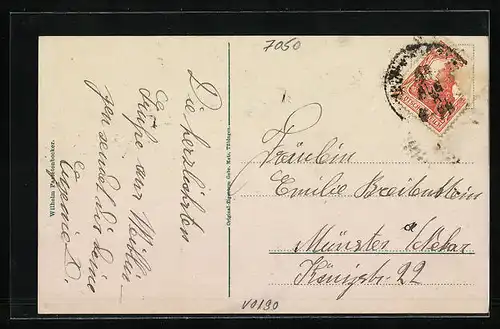 7050
Die herzlichsten
Grüße aus Waiblin-
gen sendet Dir Deine
Eugenie D.
Wilhelm
Original-Eigentum Gebr. Metz, Tübingen.
Fräulein
Emilie Breitenstein
Münster a Neckar
Königstr. 22
V0190